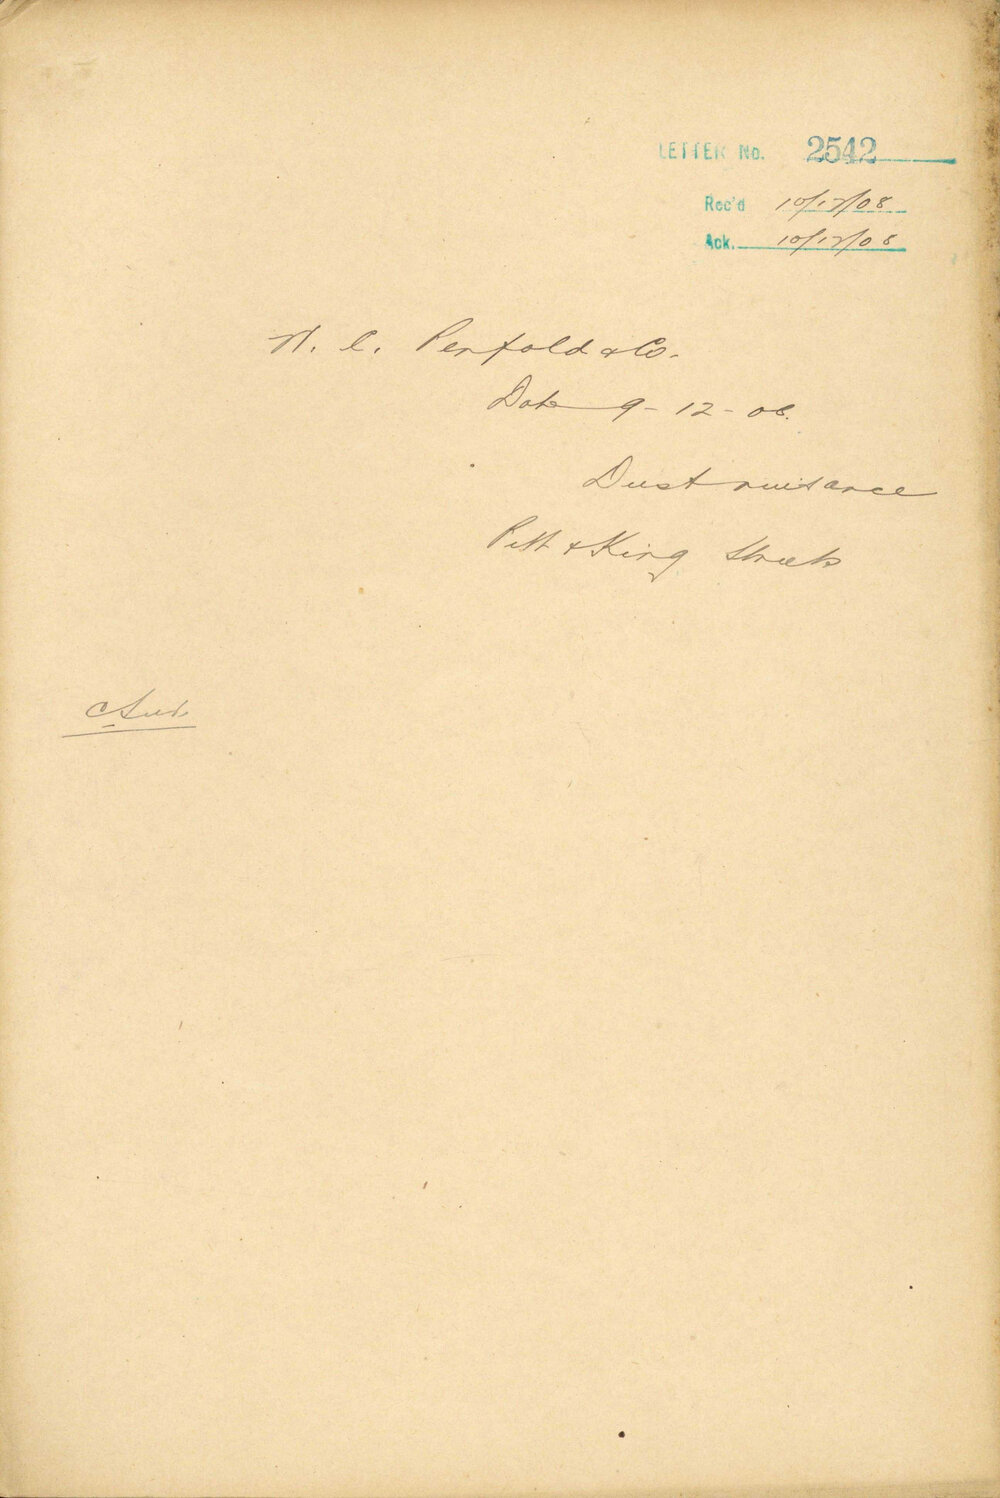 LETTER No. 2542
Rec'd 10/12/08
Ack. 10/12/08
W. C. Penfold & Co.
Date 9-12-08.
Dust nuisance
Pitt & King Streets